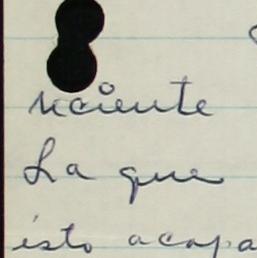 reciente
La que
ésto acapa